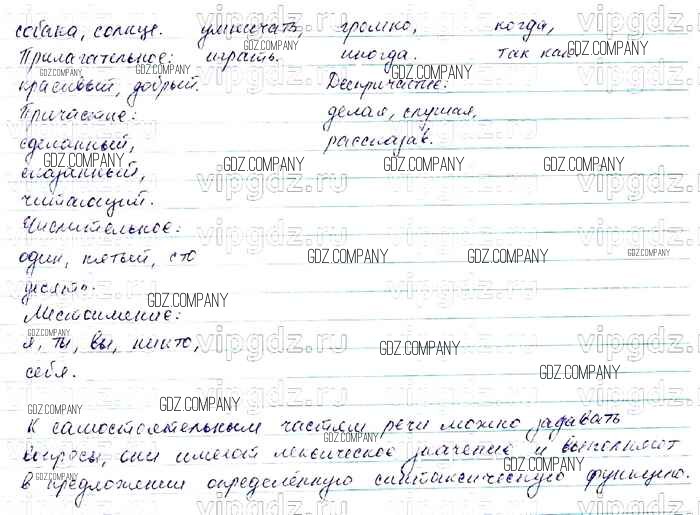 собака, солнце. умничать, громко, когда,
Прилагательное: играть. иногда. так как.
красивый, добрый. Деепричастие:
Причастие: делая, слушая,
сделанный, рассказав.
сказанный,
читающий.
Числительное:
один, пятый, сто
десять.
Местоимение:
я, ты, вы, никто,
себя.
К самостоятельным частям речи можно задавать
вопросы, они имеют лексическое значение и выполняют
в предложении определённую синтаксическую функцию.
GDZ.COMPANY
vipgdz.ru